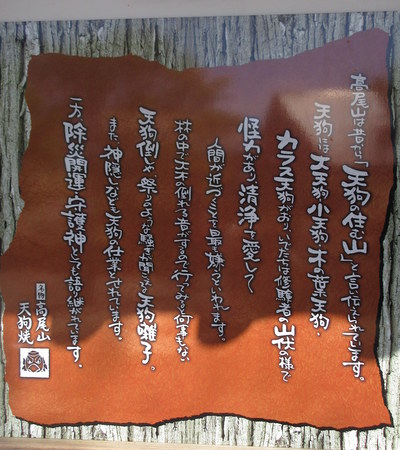 高尾山は昔から「天狗の住む山」と言い伝えられています。
天狗には大天狗・小天狗・木の葉天狗・
カラス天狗がおり、いでたちは修験者、山伏の様で
怪力があり清浄を愛して
人間が近づくことを最も嫌うといわれます。
林の中で大木の倒れる音がするので行ってみると何事もない
天狗倒しや、祭りのような騒ぎが聞こえる天狗囃子。
また、神隠しなども天狗の仕業とされています。
一方、除災開運、守護神としても語り継がれています。
名物 高尾山
天狗焼